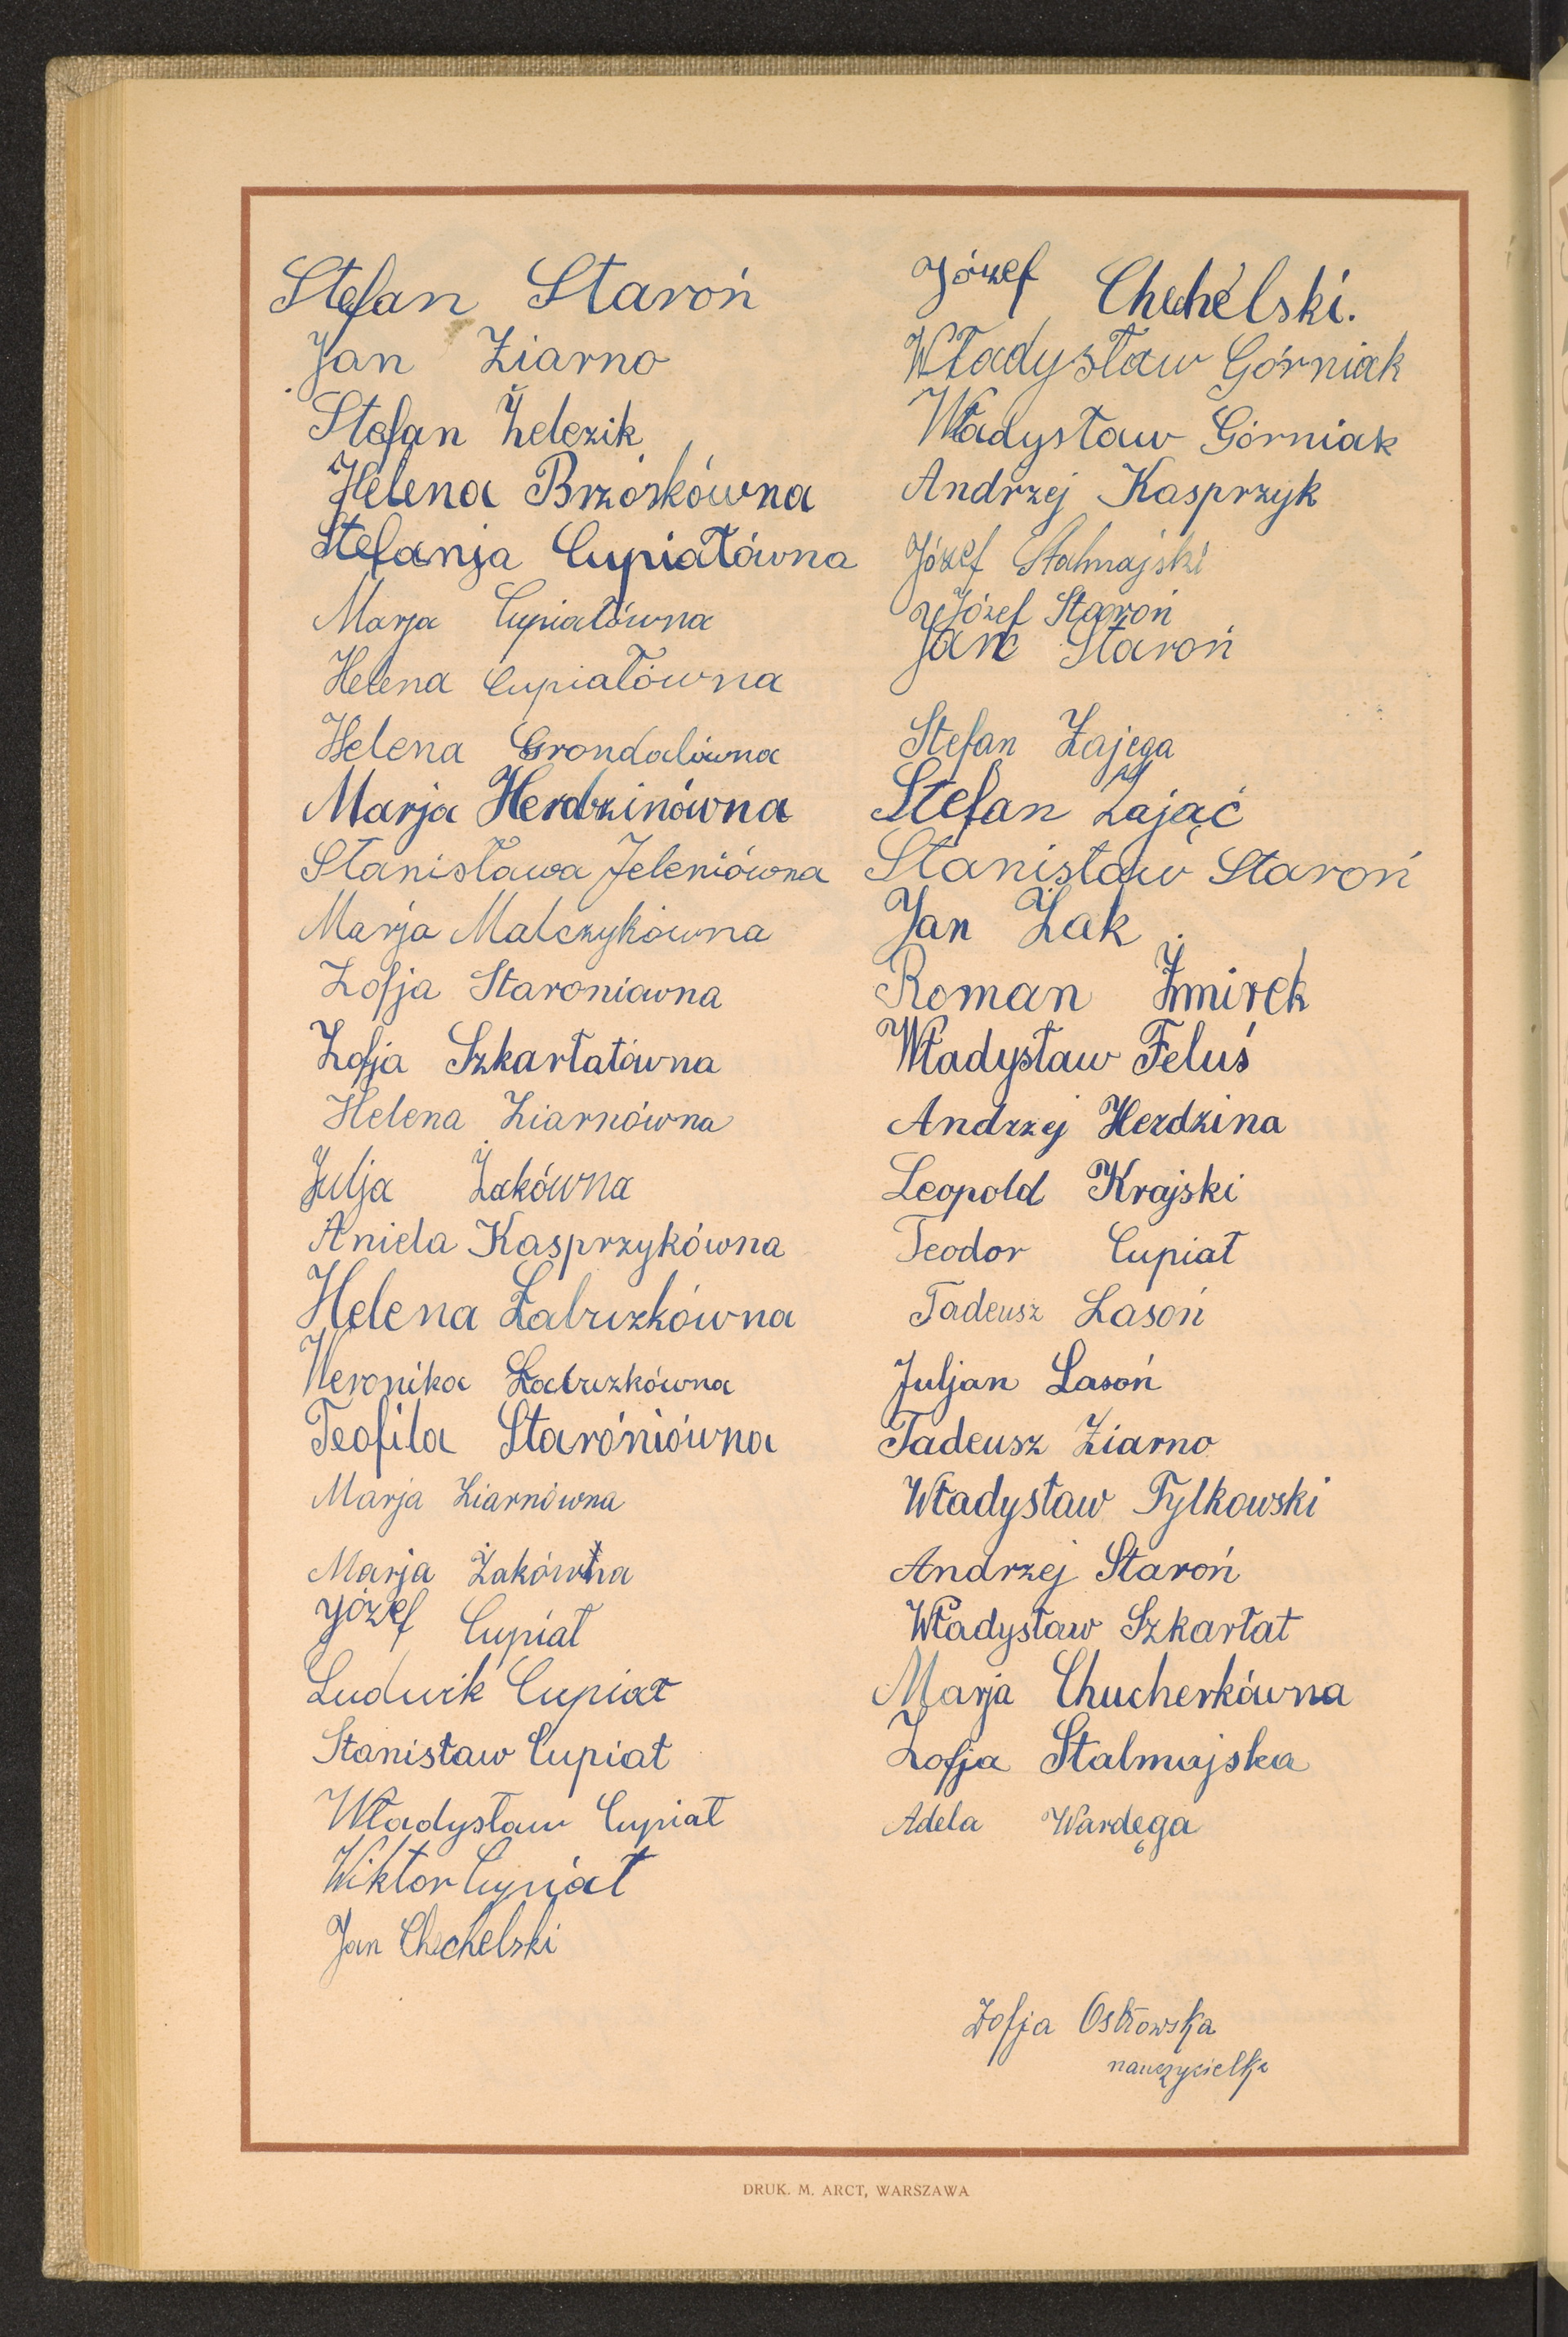 Stefan Staroń
Jan Ziarno
Stefan Żelezik
Helena Brzóskówna
Stefanja Cupiałówna
Marja Cupiałówna
Helena Cupiałówna
Helena Grondalówna
Marja Herdzinówna
Stanisława Jeleniówna
Marja Malczykówna
Zofja Staroniówna
Zofja Szkarłatówna
Helena Ziarnówna
Julja Żakówna
Aniela Kasprzykówna
Helena Łabuzkówna
Weronika Łabuzkówna
Teofila Staróniówna
Marja Ziarnówna
Marja Żakówna
Józef Cupiał
Ludwik Cupiał
Stanisław Cupiał
Władysław Cupiał
Wiktor Cupiał
Jan Chechelski
Józef Chechelski.
Władysław Górniak
Władysław Górniak
Andrzej Kasprzyk
Józef Stalmajski
Józef Staroń
Jan Staroń
Stefan Zajega
Stefan Zająć
Stanisław Staroń
Jan Żak
Roman Żmirek
Władysław Feluś
Andrzej Herdzina
Leopold Krajski
Teodor Cupiał
Tadeusz Lasoń
Juljan Lasoń
Tadeusz Ziarno
Władysław Tylkowski
Andrzej Staroń
Władysław Szkarłat
Marja Chucherkówna
Zofja Stalmajska
Adela Wardęga
Zofja Ostrowska
nauczycielka
DRUK. M. ARCT, WARSZAWA